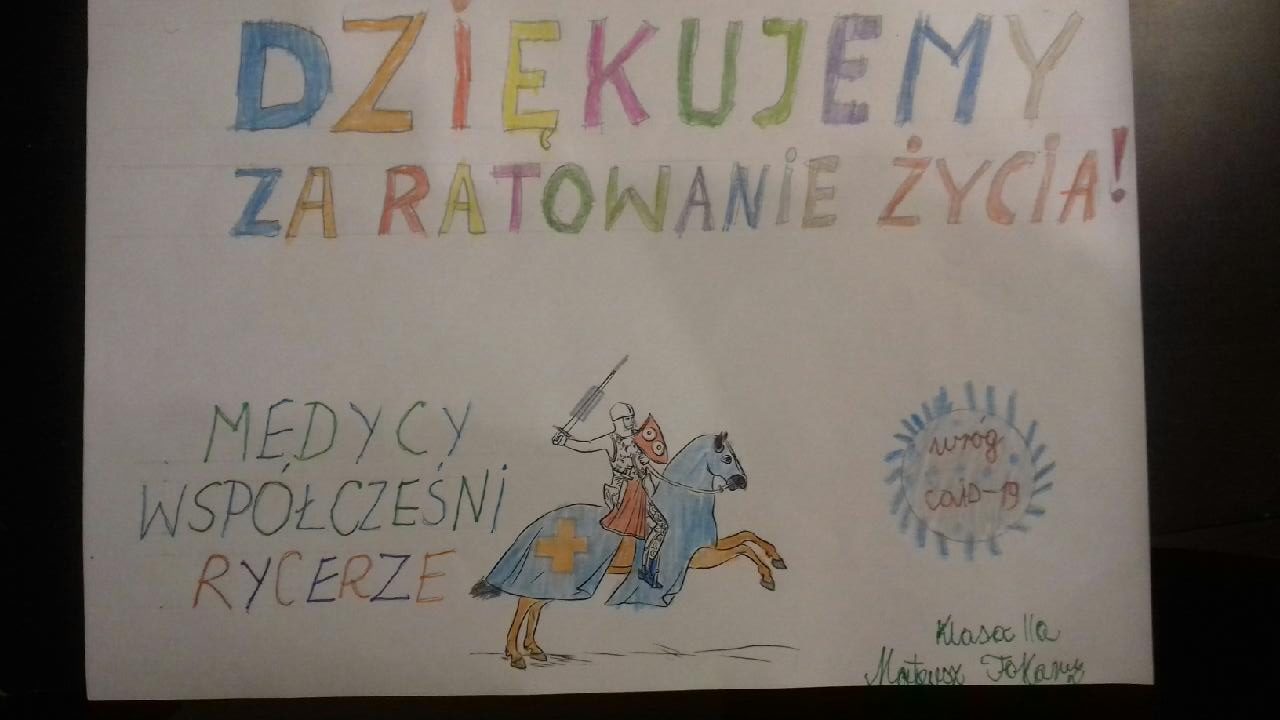 DZIĘKUJEMY
ZA RATOWANIE ŻYCIA!
MEDYCY
WSPÓŁCZEŚNI
RYCERZE
wróg
coviD-19
Klasa IIa
Mateusz Tokarz